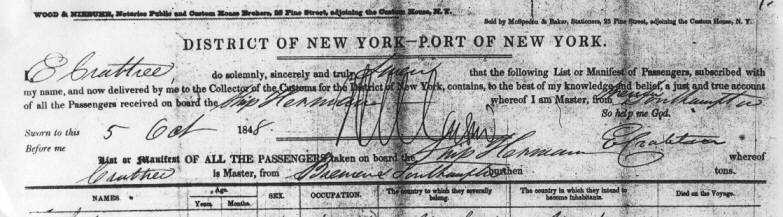 WOOD & NIEBUHR, Notaries Public and Custom House Brokers, 25 Pine Street, adjoining the Custom House, N. Y.
Sold by McSpedon & Baker, Stationers, 25 Pine Street, adjoining the Custom House, N. Y.
DISTRICT OF NEW YORK—PORT OF NEW YORK.
I, E Crabtree, do solemnly, sincerely and truly swear that the following List or Manifest of Passengers, subscribed with
my name, and now delivered by me to the Collector of the Customs for the District of New York, contains, to the best of my knowledge and belief, a just and true account
of all the Passengers received on board the Ship Hermann whereof I am Master, from Southampton
So help me God.
Sworn to this 5 Oct 1848
Before me E Crabtree
List or Manifest OF ALL THE PASSENGERS taken on board the Ship Hermann whereof
Crabtree is Master, from Bremen & Southampton burthen tons.
NAMES. Age. Years. Months. SEX. OCCUPATION. The country to which they severally belong. The country in which they intend to become inhabitants. Died on the Voyage.